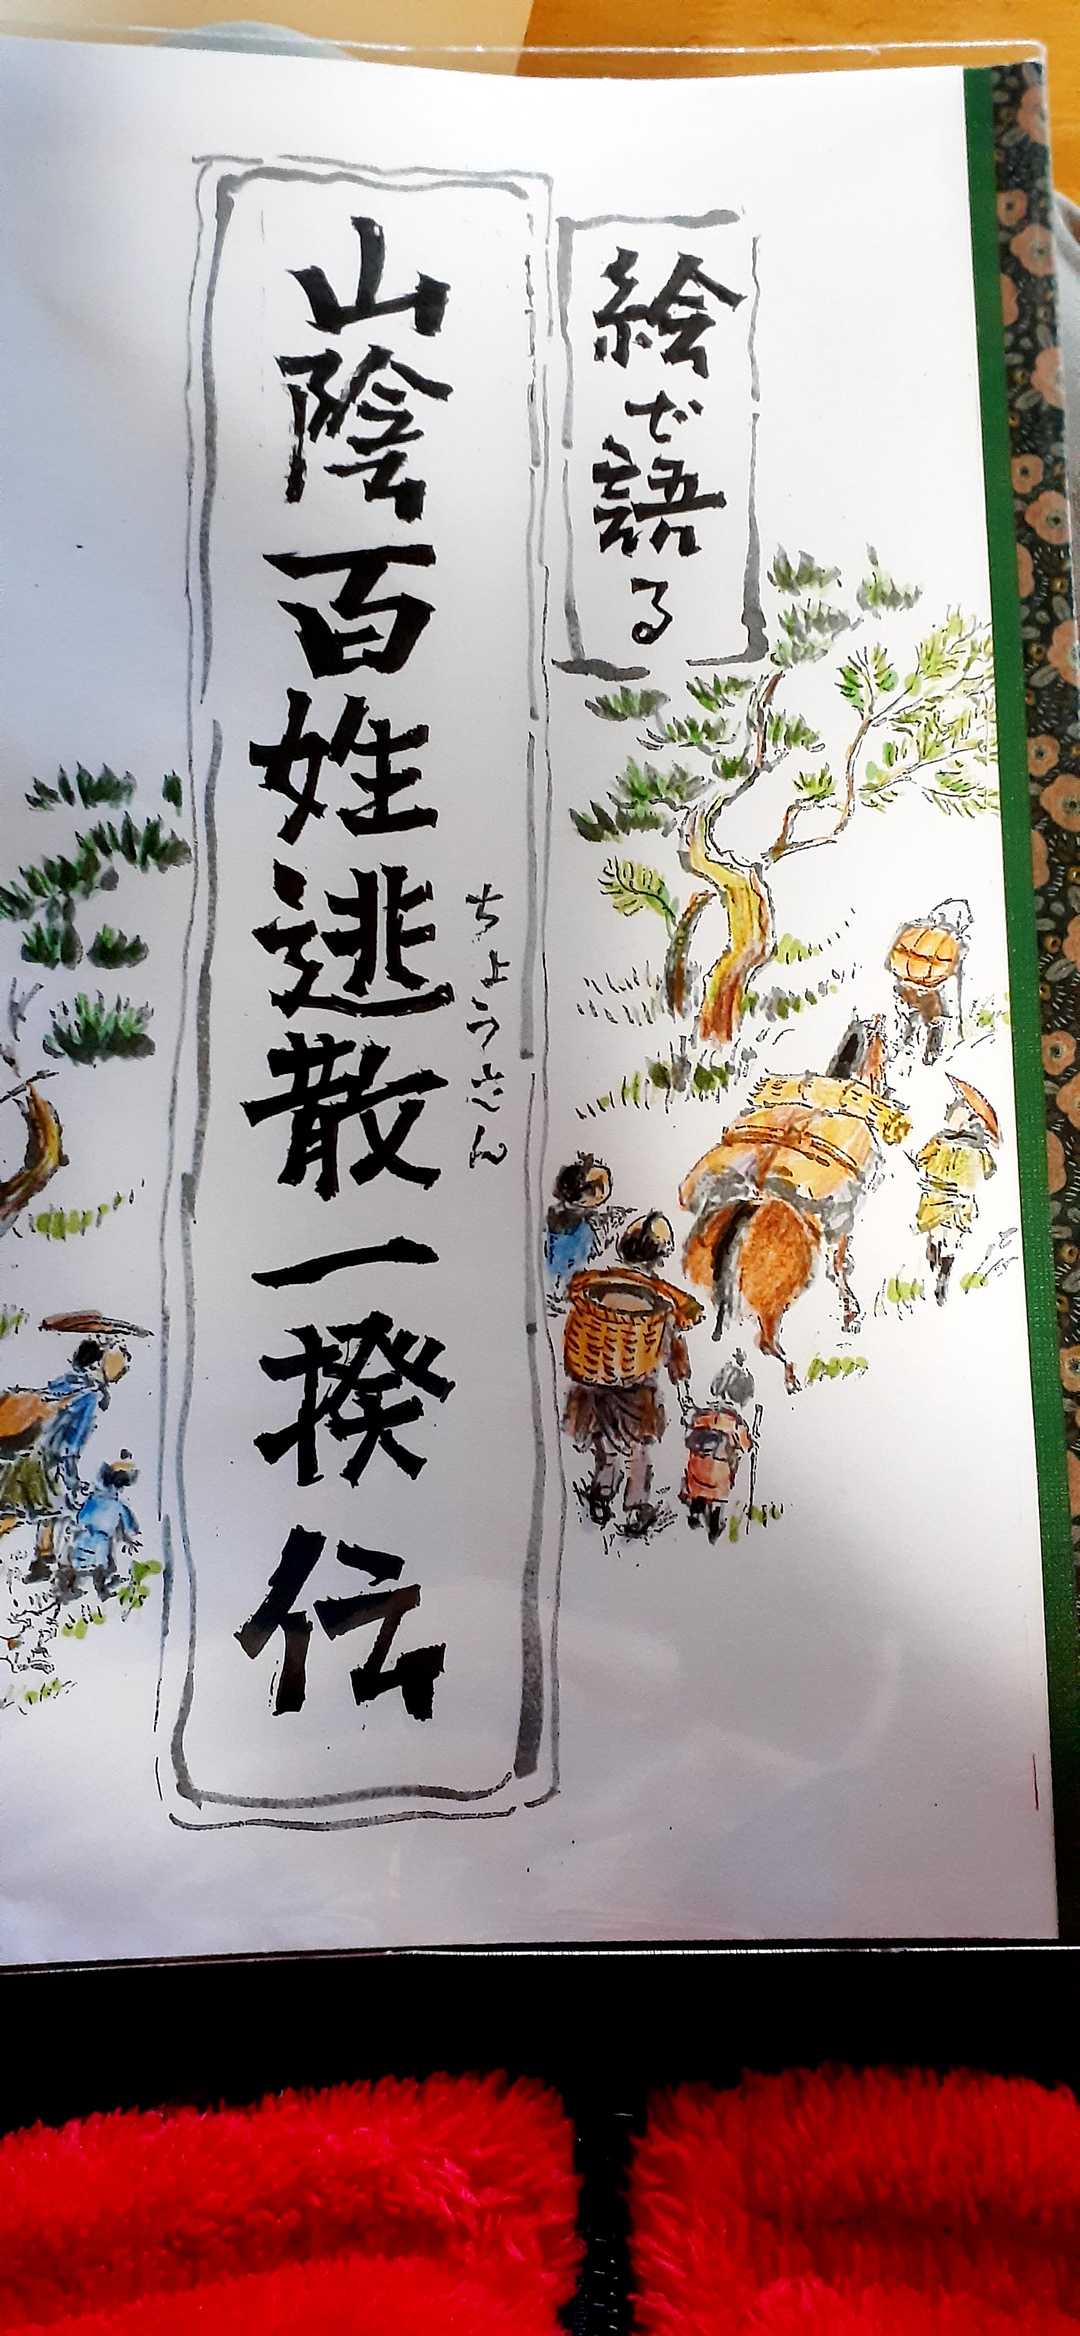 絵で語る
山陰百姓逃散一揆伝
ちょうさん